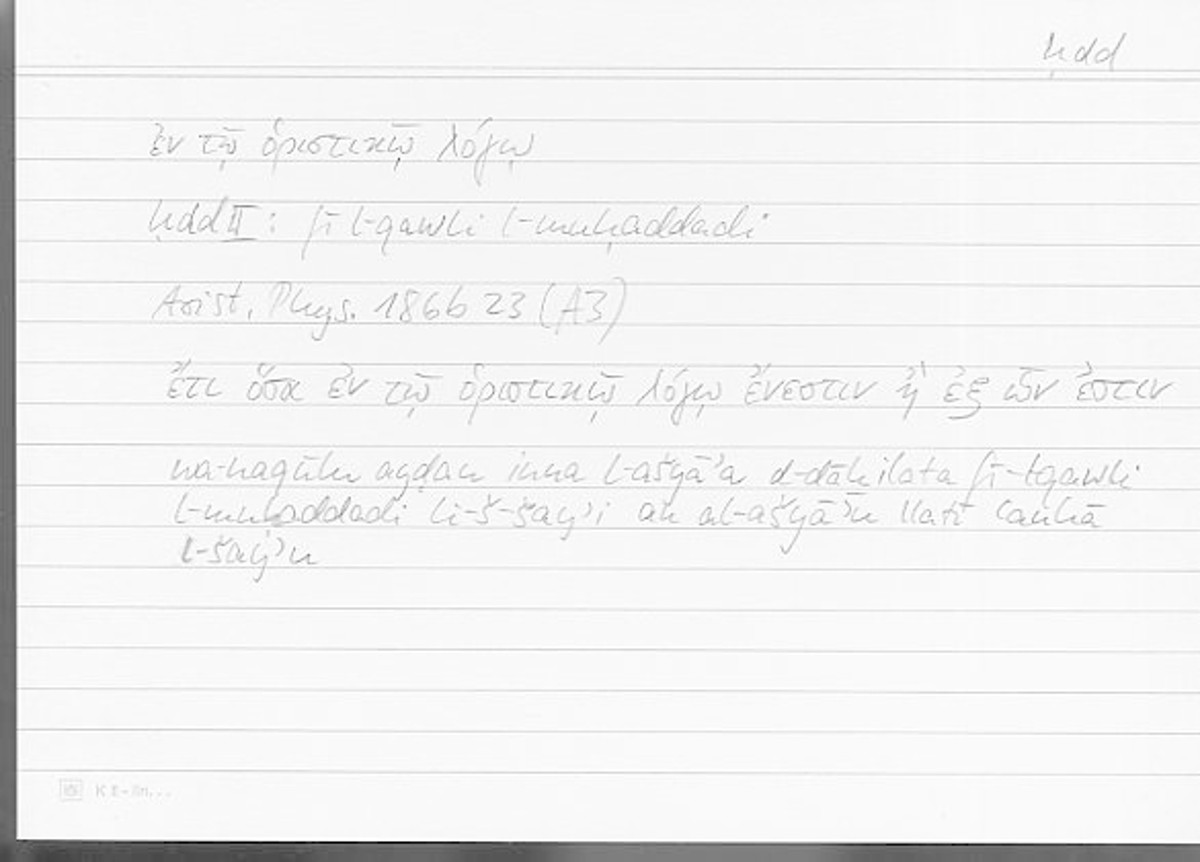 ḥdd
ἐν τῷ ὁριστικῷ λόγῳ
ḥdd II: fī l-qawli l-muḥaddadi
Arist. Phys. 186b 23 (A3)
ἔτι ὅσα ἐν τῷ ὁριστικῷ λόγῳ ἔνεστιν ἢ ἐξ ὧν ἐστιν
wa-naqūlu ayḍan inna l-ašyāʾa d-dāḫilata fī-lqawli
l-muḥaddadi li-š-šayʾi au al-ašyāʾu llatī ʿanhā
l-šayʾu